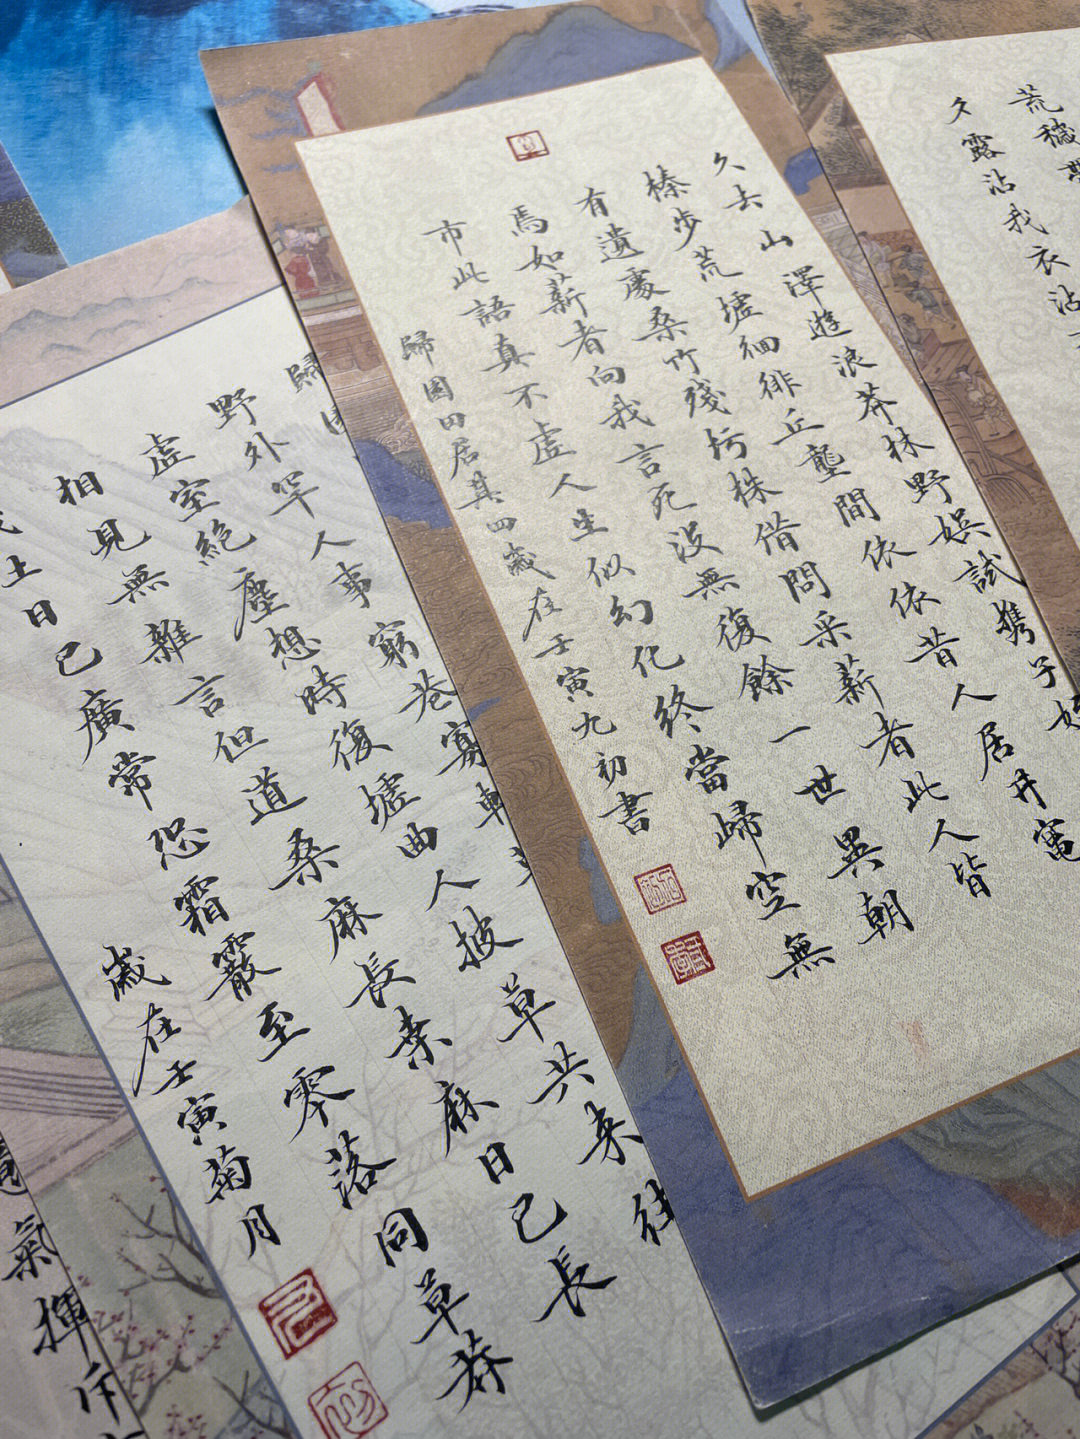 荒穢
夕露沾我衣沾
久去山澤遊浪莽林野娛試携子
榛步荒墟徊徘丘壟間依依昔人居井竈
有遺處桑竹殘朽株借問采薪者此人皆
焉如薪者向我言死没無復餘一世異朝
市此語真不虛人生似幻化終當歸空無
歸園田居其四歲在壬寅九初書
歸
野外罕人事窮巷寡輪
虛室絕塵想時復墟曲人披草共来往
相見無雜言但道桑麻長桑麻日已長
我土日已廣常恐霜霰至零落同草莽
歲在壬寅菊月
氣揮斥